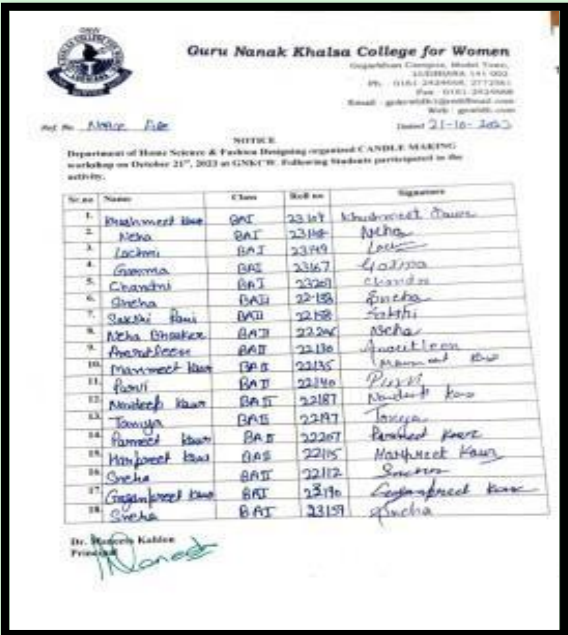 Guru Nanak Khalsa College for Women
Gujarkhan Campus, Model Town,
LUDHIANA 141 002
Dated 21-10-2023
NOTICE
Department of Home Science & Fashion Designing organized CANDLE MAKING
workshop on October 21st, 2023 at GNKCW. Following Students participated in the
activity.
Sr.no Name Class Roll no Signature
1. Khushmeet Kaur BAI Khushmeet Kaur
2. Neha BAI Neha
3. Lachmi BAI 23149
4. Garima BAI 23167 Garima
5. Chandni BAI Chandni
6. Sneha BAII 22153 Sneha
7. Sakshi Rani BAII 22158 Sakshi
8. Neha Bhasker BAII Neha
9. Amritleen BAII 22130 Amritleen
10. Manmeet Kaur BAII 22135 Manmeet Kaur
11. Purvi BAII 22140 Purvi
12. Navdeep Kaur BAII 22187 Kaur
13. Taniya BAII 22197
14. Parneet Kaur BAII 22207 Parneet Kaur
15. Harpreet Kaur BAII 22115 Harpreet Kaur
16. Sneha BAII 22112 Sneha
17. Gaganpreet Kaur BAI 23170 Gaganpreet Kaur
18. Sneha BAI 23159 Sneha
Dr. Maneeta Kahlon
Principal